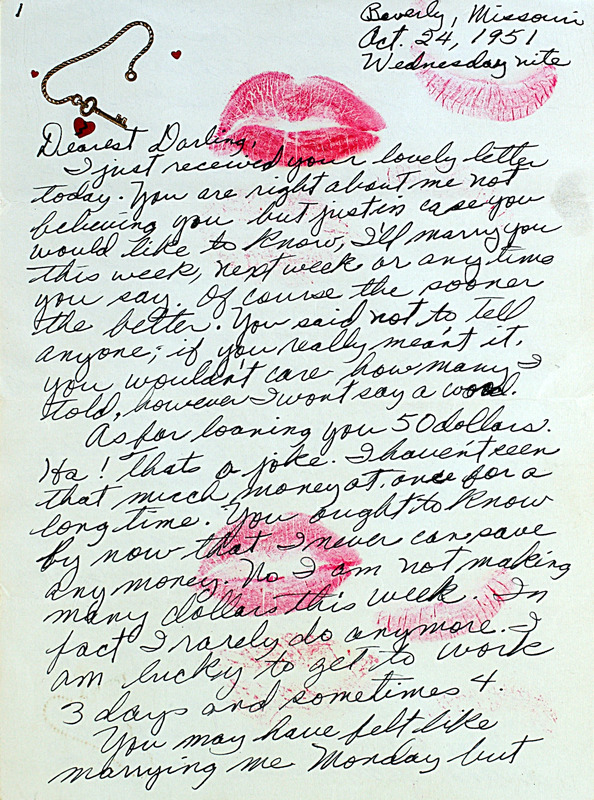 1
Beverly, Missouri
Oct. 24, 1951
Wednesday nite
Dearest Darling,
I just received your lovely letter
today. You are right about me not
believing you but just in case you
would like to know, I'll marry you
this week, next week or any time
you say. Of course the sooner
the better. You said not to tell
anyone; if you really meant it,
you wouldn't care how many I
told, however I wont say a word.
As for loaning you 50 dollars.
Ha! Thats a joke. I haven't seen
that much money at once for a
long time. You ought to know
by now that I never can save
any money. No I am not making
many dollars this week. In
fact I rarely do anymore. I
am lucky to get to work
3 days and sometimes 4.
You may have felt like
marrying me Monday but